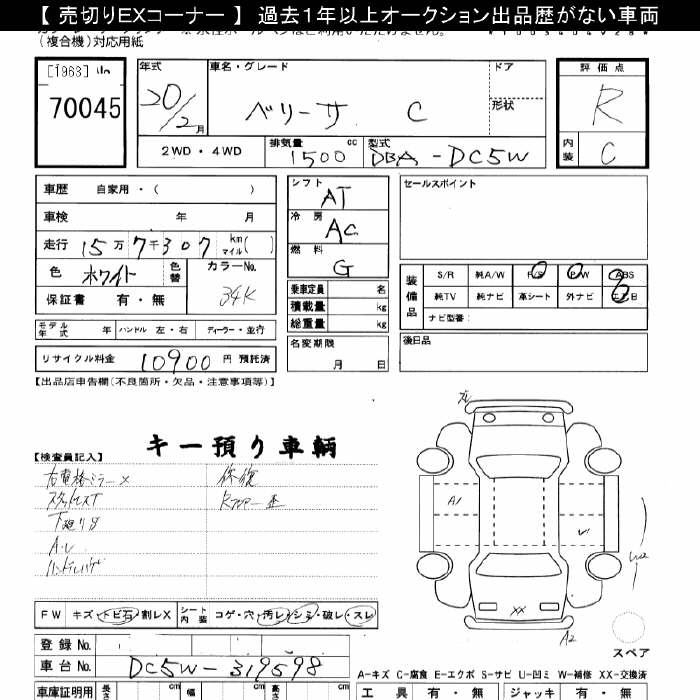 【 売切りEXコーナー 】 過去1年以上オークション出品歴がない車両
(複合機)対応用紙
[1963]
70045
年式
20/2月
車名・グレード
ベリーサ C
ドア
形状
評価点
R
内装
C
2WD ・ 4WD
排気量
1500 cc
型式
DBA - DC5W
車歴 自家用 ・ ( )
車検 年 月
走行 15万7千307 km マイル ( )
色 ホワイト 色替
カラーNo.
34K
保証書 有 ・ 無
シフト
AT
冷房
AC
燃料
G
乗車定員 名
積載量 kg
総重量 kg
名変期限
月 日
セールスポイント
装備品
S/R 純A/W P/S P/W ABS
純TV 純ナビ 革シート 外ナビ エアB
ナビ型番:
後日品
モデル年式 年 ハンドル 左・右 ディーラー・並行
リサイクル料金 10900 円 預託済
【出品店申告欄(不良箇所・欠品・注意事項等)】
キー預り車輌
【検査員記入】
右電格ミラーX
下廻りサ
A1
XX
A2
FW キズ・トビ石・割レX シート内装 コゲ・穴・汚レ・シミ・破レ・スレ
登録No.
車台No. DC5W-319598
スペア
A-キズ C-腐食 E-エクボ S-サビ U-凹ミ W-補修 XX-交換済
車庫証明用 長さ cm 幅 cm 高さ cm
工具 有 ・ 無 ジャッキ 有 ・ 無